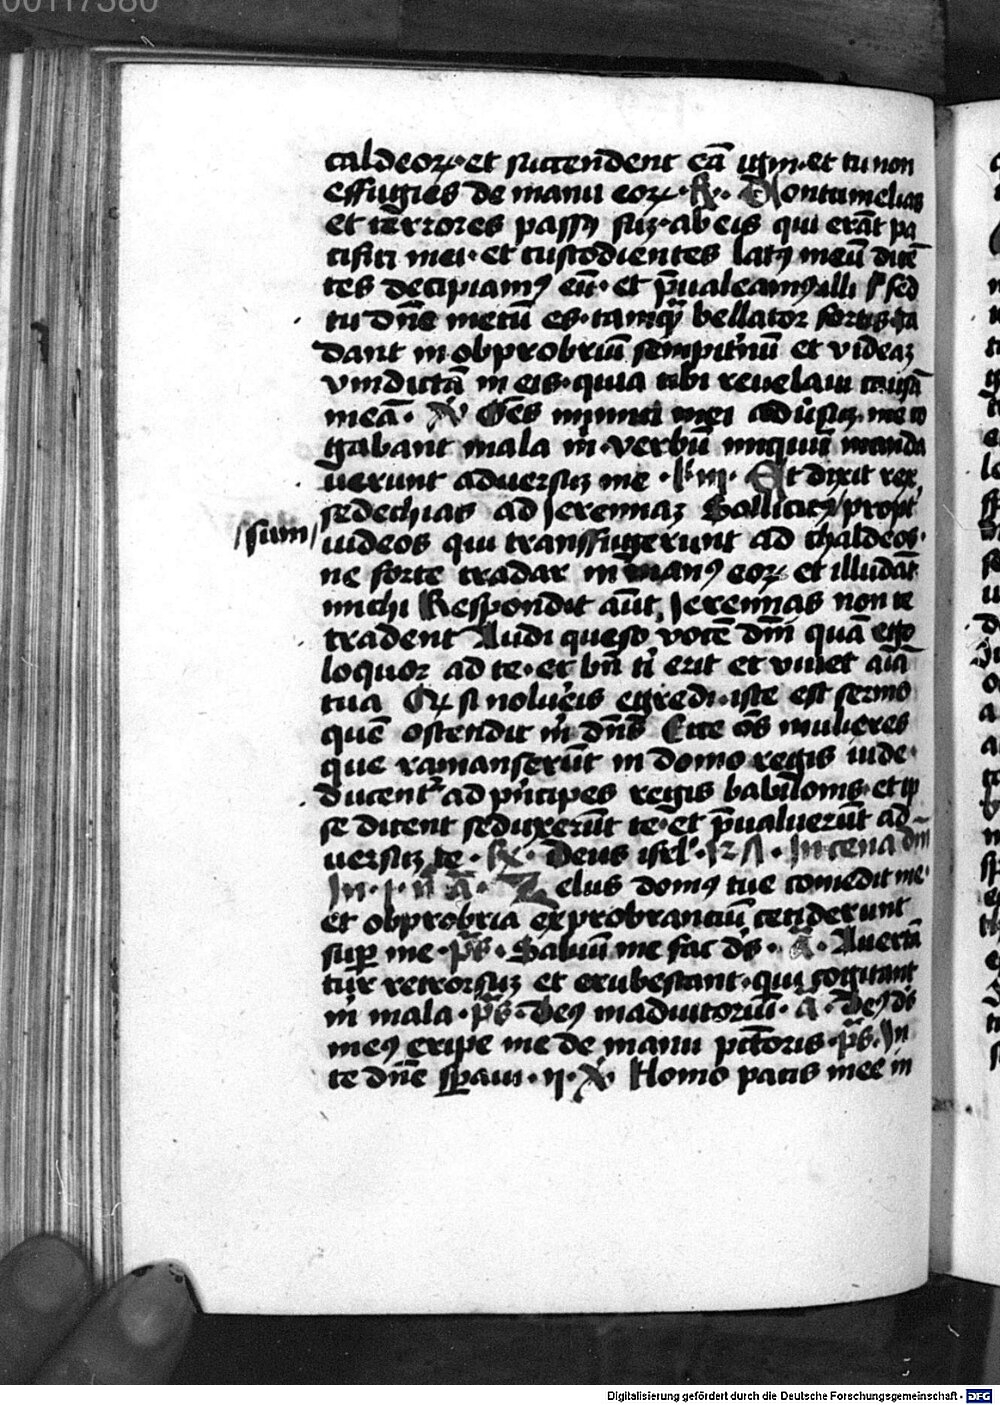 00117380
caldeoꝝ· et succendent eā igni· et tu non
effugies de manu eoꝝ· R̸· Contumelias
et terrores passꝰ suꝫ· ab eis qui erāt pa
cifici mei· et custodientes latꝰ meū dicē
tes decipiamꝰ eū· et p̄ualeamꝰ illi sed
tu dn̄e mecū es· tamqꝫ bellator fortis ca
dant in obprobriū sempit'nū et videaꝫ
vindictā in eis· quia tibi reuelaui causā
meā· V̸ Oēs inimici mei aduersuꝫ me co
gabant mala m· verbū iniquū manda
uerunt aduersuꝫ me · l iij· Et dixit rex
sedechias ad Jeremiaꝫ Sollicitꝰ propt'
/sum/ iudeos qui transfugerunt ad chaldeos·
ne forte tradar in manꝰ eoꝝ et illudāt
michi Respondit aūt Jeremias non te
tradent Audi queso vocē dn̄i quā ego
loquor ad te· et bn̄ t' erit et viuet aīa
tua si noluēis egredi· iste est sermo
quē ostendit m dn̄s Ecce oēs mulieres
que ramanserūt in domo regis iude·
ducent' ad p'ncipes regis babilonis· et ip
se dicent seduxerūt te· et p̄ualuerūt ad
uersuꝫ te · R̸· Deus isrl' · In cena dn̄i
In · j · n̄ ā · Zelus domꝰ tue comedit me·
et obprobria exprobranciū ceciderunt
sup me · p̄s · Saluū me fac ds · ā · Auertā
tur retrorsuꝫ et erubescant· qui cogitant
m mala · p̄s · Deꝰ in adiutoriū · a · Deꝰ ds
meꝰ eripe me de manu pctoris · p̄s · In
te dn̄e sperāui · ij · V̸ Homo pacis mee in
Digitalisierung gefördert durch die Deutsche Forschungsgemeinschaft - DFG